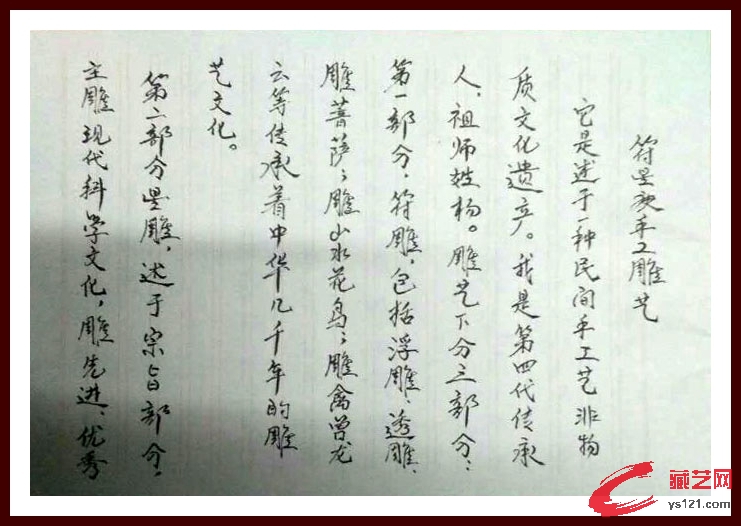 符星庚手工雕艺
它是述于一种民间手工艺非物
质文化遗产。我是第四代传承
人，祖师姓杨。雕艺下分三部分：
第一部分，符雕，包括浮雕、透雕、
雕菩萨；雕山水花鸟；雕禽兽龙
云等传承着中华几千年的雕
艺文化。
第二部分星雕，述于宗旨部分，
主雕现代科学文化，雕先进、优秀
藏艺网
ys121.com